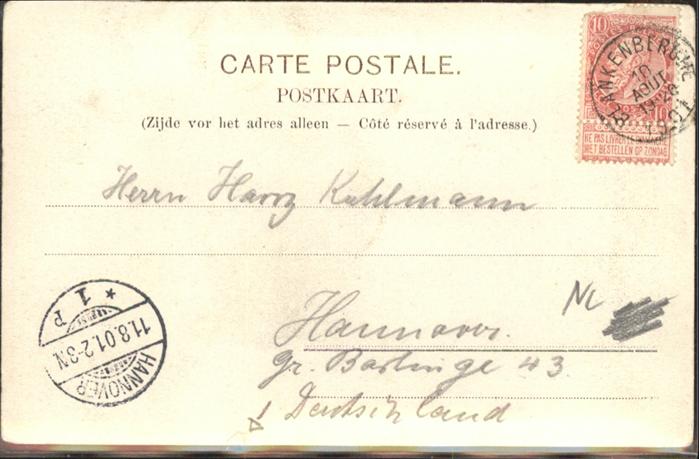 CARTE POSTALE.
POSTKAART.
(Zijde vor het adres alleen — Côté réservé à l'adresse.)
10 10
BLANKENBERGHE
10
AOUT
19-20
1901
NE PAS LIVRER
NIET BESTELLEN OP ZONDAG
Herrn Harry Kuhlmann
NL
Hannover.
gr. Barlinge 43
Deutschland
HANNOVER
11.8.01.2-3N
* 1 P